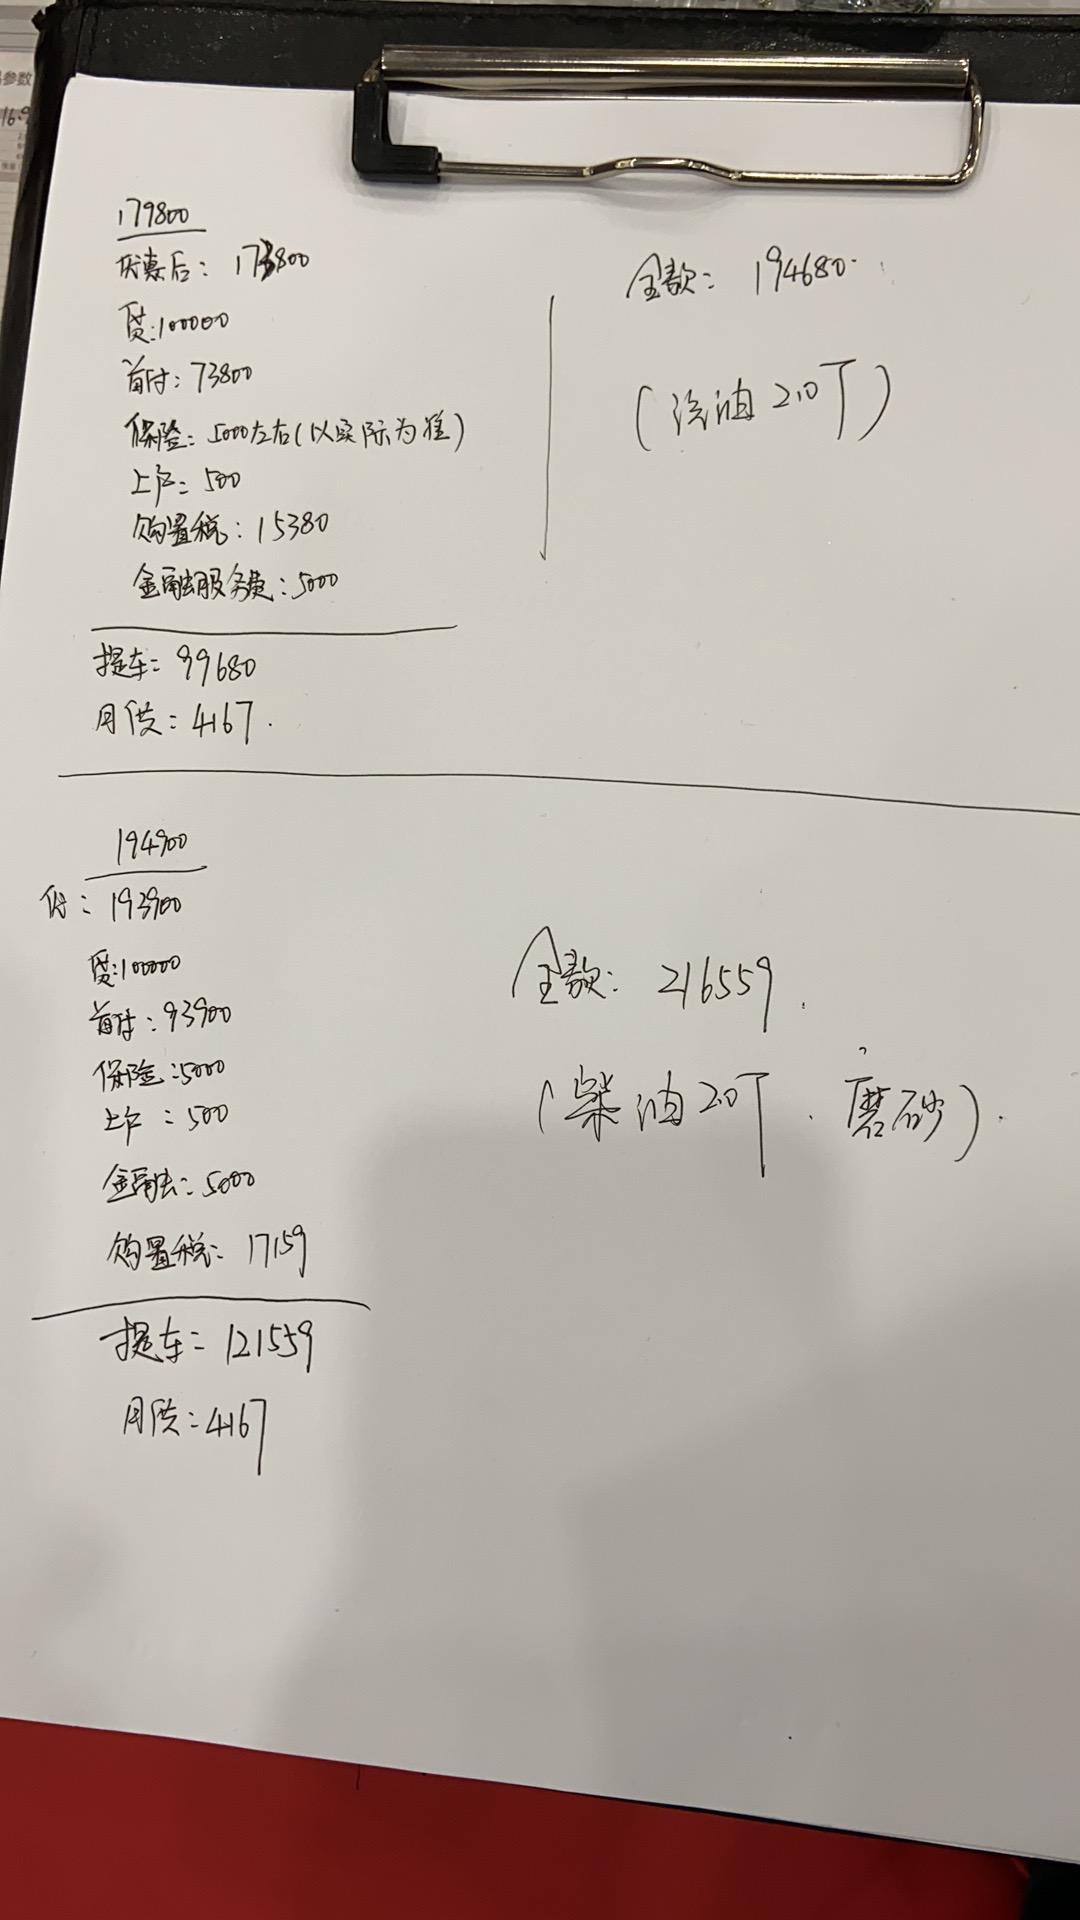 参数
179800
优惠后：173800
贷：100000
首付：73800
保险：5000左右（以实际为准）
上户：500
购置税：15380
金融服务费：5000
提车：99680
月供：4167.
全款：194680.
（汽油2.0T）
194900
优：193900
贷：100000
首付：93900
保险：5000
上户：500
金融：5000
购置税：17159
提车：121559
月供：4167
全款：216559.
（柴油2.0T、磨砂）.